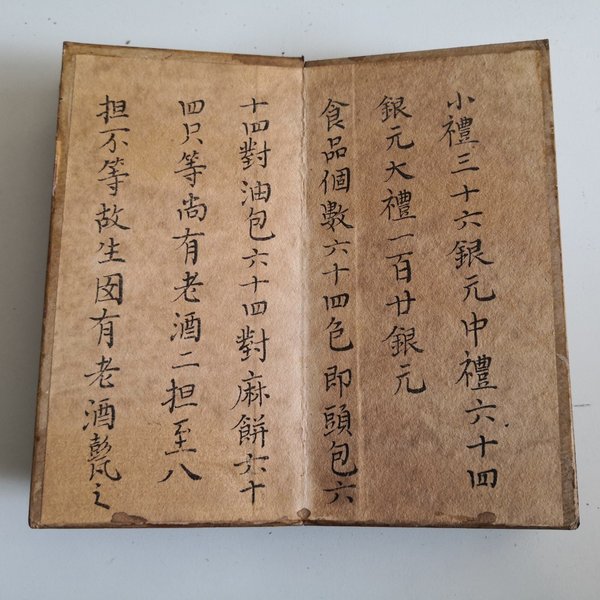 小禮三十六銀元中禮六十四
銀元大禮一百廿銀元
食品個數六十四色即頭包六
十四對油包六十四對麻餅六十
四只等尚有老酒二担至八
担不等故生囡有老酒甏之